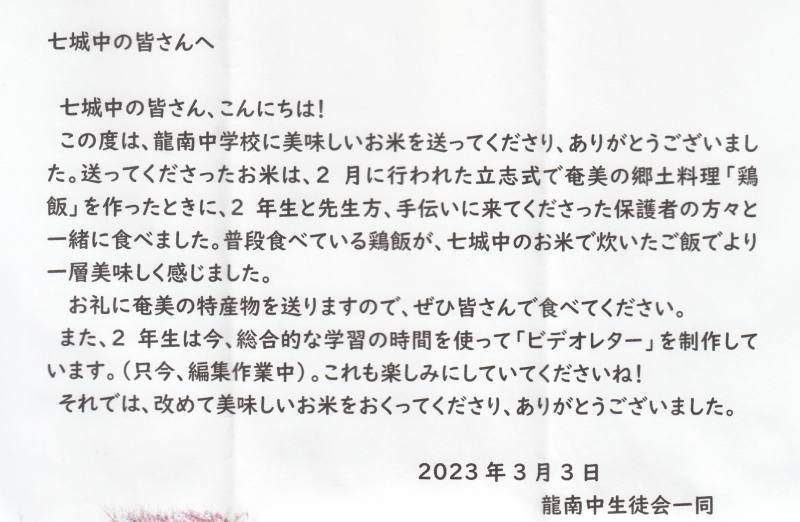 七城中の皆さんへ
七城中の皆さん、こんにちは！
この度は、龍南中学校に美味しいお米を送ってくださり、ありがとうございまし
た。送ってくださったお米は、2 月に行われた立志式で奄美の郷土料理「鶏
飯」を作ったときに、2 年生と先生方、手伝いに来てくださった保護者の方々と
一緒に食べました。普段食べている鶏飯が、七城中のお米で炊いたご飯でより
一層美味しく感じました。
お礼に奄美の特産物を送りますので、ぜひ皆さんで食べてください。
また、2 年生は今、総合的な学習の時間を使って「ビデオレター」を制作して
います。（只今、編集作業中）。これも楽しみにしていてくださいね！
それでは、改めて美味しいお米をおくってくださり、ありがとうございました。
2023 年 3 月 3 日
龍南中生徒会一同